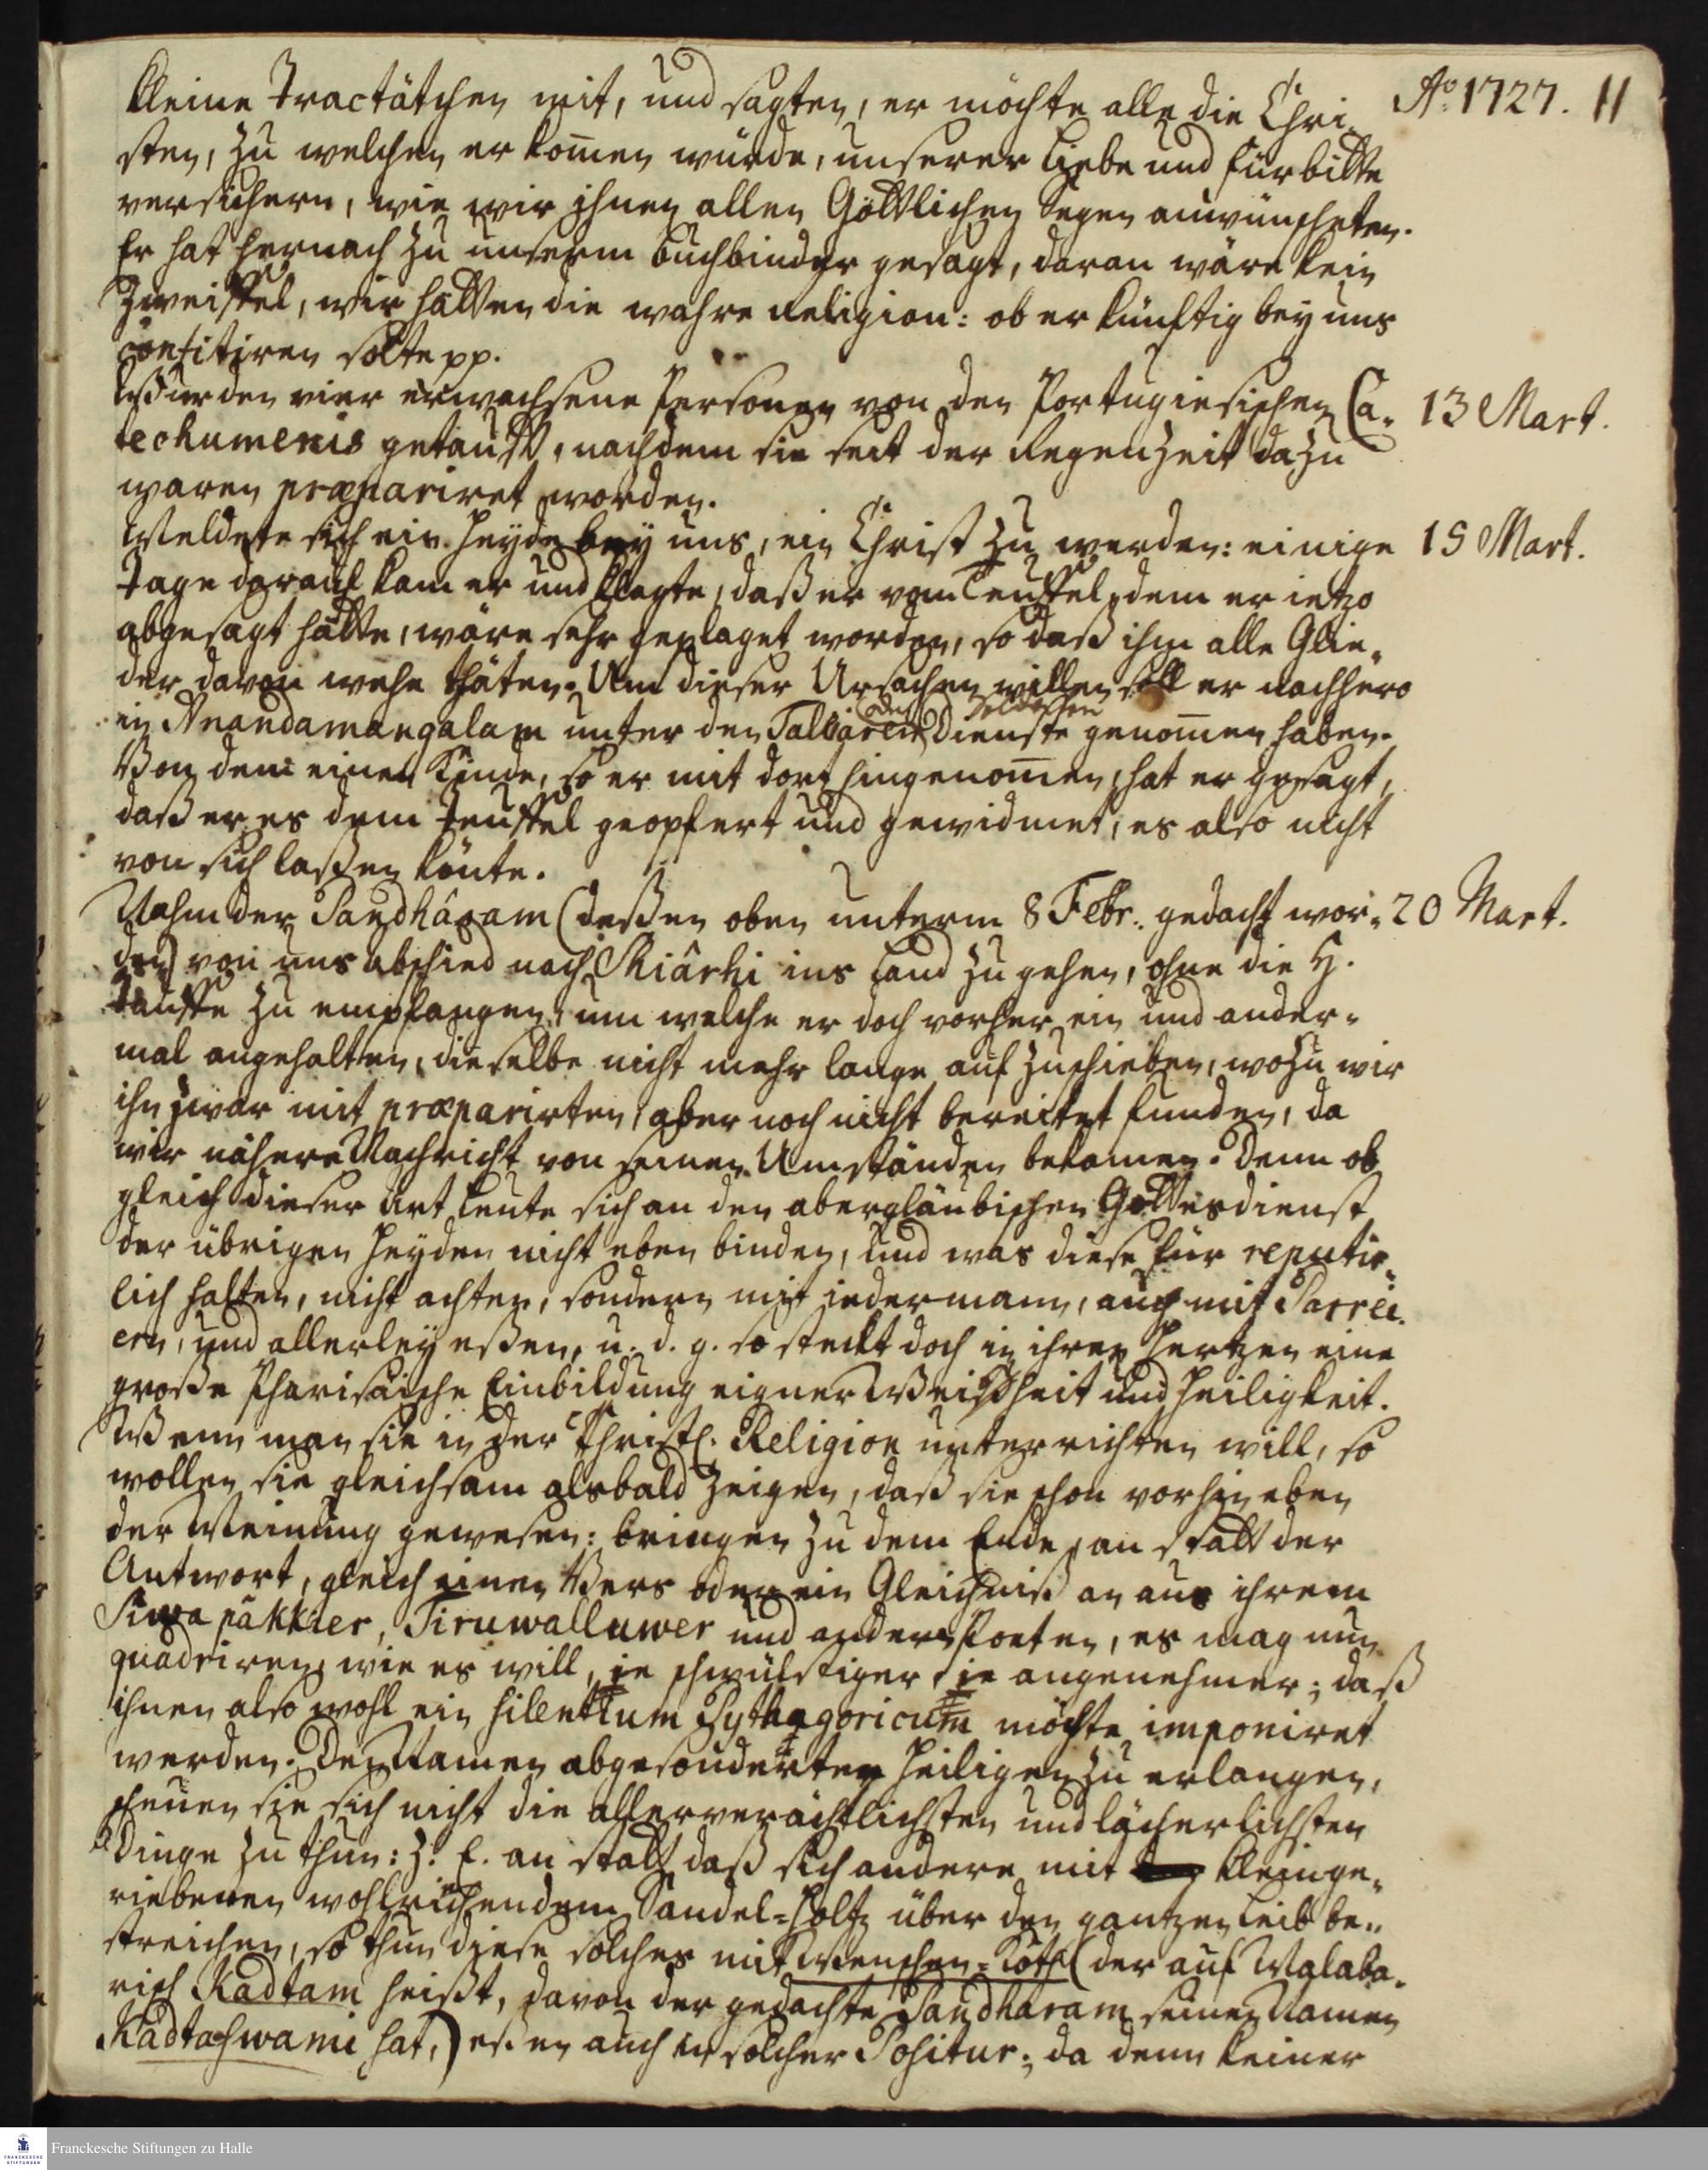 Aõ. 1727. 11
kleine Tractätchen mit, und sagten, er möchte alle die Chri-
sten, zu welchen er kom̄en würde, unserer Liebe und Fürbitte
versichern, wie wir ihnen allen Göttlichen Segen anwünscheten.
Er hat hernach zu unserm Buchbinder gesagt, daran wäre kein
Zweiffel, wir hätten die wahre Religion: ob er künftig bey uns
confitiren solte pp.
Wurden vier erwachsene Personen von den Portugiesischen Ca- 13 Mart.
techumenis getaufft, nachdem sie seit der Regenzeit dazu
waren præpariret worden.
Meldete sich ein Heyde bey uns, ein Christ zu werden: einige 15 Mart.
Tage darauf kam er und klagte, daß er vom Teuffel, dem er ietzo
abgesagt hätte, wäre sehr geplaget worden, so daß ihm alle Glie-
der davon wehe thäten. Um dieser Ursachen willen soll er nachhero
in Anandamangalam unter den Talliaren den Soldaten Dienste genom̄en haben.
Von dem einen Kinde, so er mit dort hingenom̄en, hat er gesagt,
daß er es dem Teuffel geopfert und gewidmet, es also nicht
von sich laßen könte.
Nahm der Pandháram (deßen oben unterm 8 Febr. gedacht wor- 20 Mart.
den) von uns abschied nach Shiârhi ins Land zu gehen, ohne die H.
Tauffe zu empfangen, um welche er doch vorher ein und ander-
mal angehalten, dieselbe nicht mehr lange aufzuschieben, wozu wir
ihn zwar mit præparirten, aber noch nicht bereitet funden, da
wir nähere Nachricht von seinen Umständen bekamen. Denn ob
gleich dieser Art Leute sich an den abergläubischen Gottesdienst
der übrigen Heyden nicht eben binden, und was diese für reputir-
lich halten, nicht achten, sondern mit jedermann, auch mit Parrei-
ern, und allerley eßen, u. d. g. so steckt doch in ihren Hertzen eine
große Pharisäische Einbildung eigner Weißheit und Heiligkeit.
Wenn man sie in der Christl. Religion unterrichten will, so
wollen sie gleichsam alsbald zeigen, daß sie schon vorhin eben
der Meinung gewesen: bringen zu dem Ende, an statt der
Antwort, gleich einen Vers oder ein Gleichniß an aus ihrem
Siwapâkkier, Tiruwalluwer und andern Poeten, es mag nun
quadriren, wie es will, je schwülstiger, je angenehmer; daß
ihnen also wohl ein silentium Pythagoricum möchte imponiret
werden. Den Namen abgesonderten Heiligen zu erlangen,
scheuen sie sich nicht die allerverächtlichsten und lächerlichsten
Dinge zu thun: z. E. an statt daß sich andere mit kleinge-
riebenen wohlriechendem Sandel-Holtz über den gantzen Leib be-
streichen, so thun diese solches mit Menschen-Koth (der auf Malaba-
risch Kadtam heißt, davon der gedachte Pandharam seinen Namen
Kadtaswami hat,) eßen auch in solcher Positur; da denn keiner
Franckesche Stiftungen zu Halle